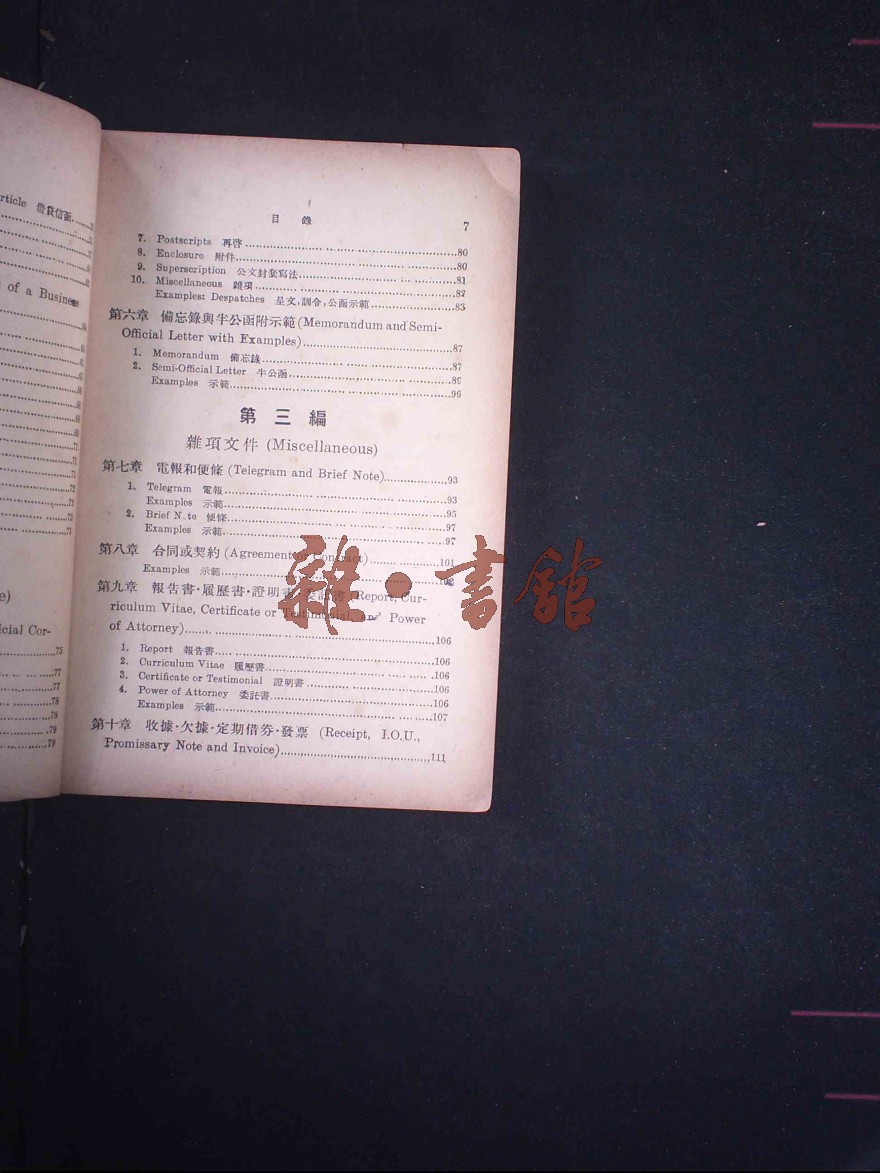 rticle 借貸信函
of a Business
e)
icial Cor-
.....75
.....77
.....77
.....78
.....78
.79
.....79
目 錄 7
7. Postscripts 再啓.....80
8. Enclosure 附件.....80
9. Superscription 公文封套寫法.....81
10. Miscellaneous 雜項.....82
Examples: Despatches 呈文,訓令,公函示範.....83
第六章 備忘錄與半公函附示範(Memorandum and Semi-
Official Letter with Examples).....87
1. Memorandum 備忘錄.....87
2. Semi-Official Letter 半公函.....89
Examples 示範.....90
第 三 編
雜項文件 (Miscellaneous)
第七章 電報和便條 (Telegram and Brief Note).....93
1. Telegram 電報.....93
Examples 示範.....95
2. Brief N.te 便條.....97
Examples 示範.....97
第八章 合同或契約 (Agreement or Contract).....101
Examples 示範.....
第九章 報告書·履歷書·證明書·委託書 (Report, Cur-
riculum Vitae, Certificate or Testimonial, and Power
of Attorney).....106
1. Report 報告書.....106
2. Curriculum Vitae 履歷書.....106
3. Certificate or Testimonial 證明書.....106
4. Power of Attorney 委託書.....106
Examples 示範.....107
第十章 收據·欠據·定期借券·發票 (Receipt, I.O.U.,
Promissary Note and Invoice).....111
雜·書館